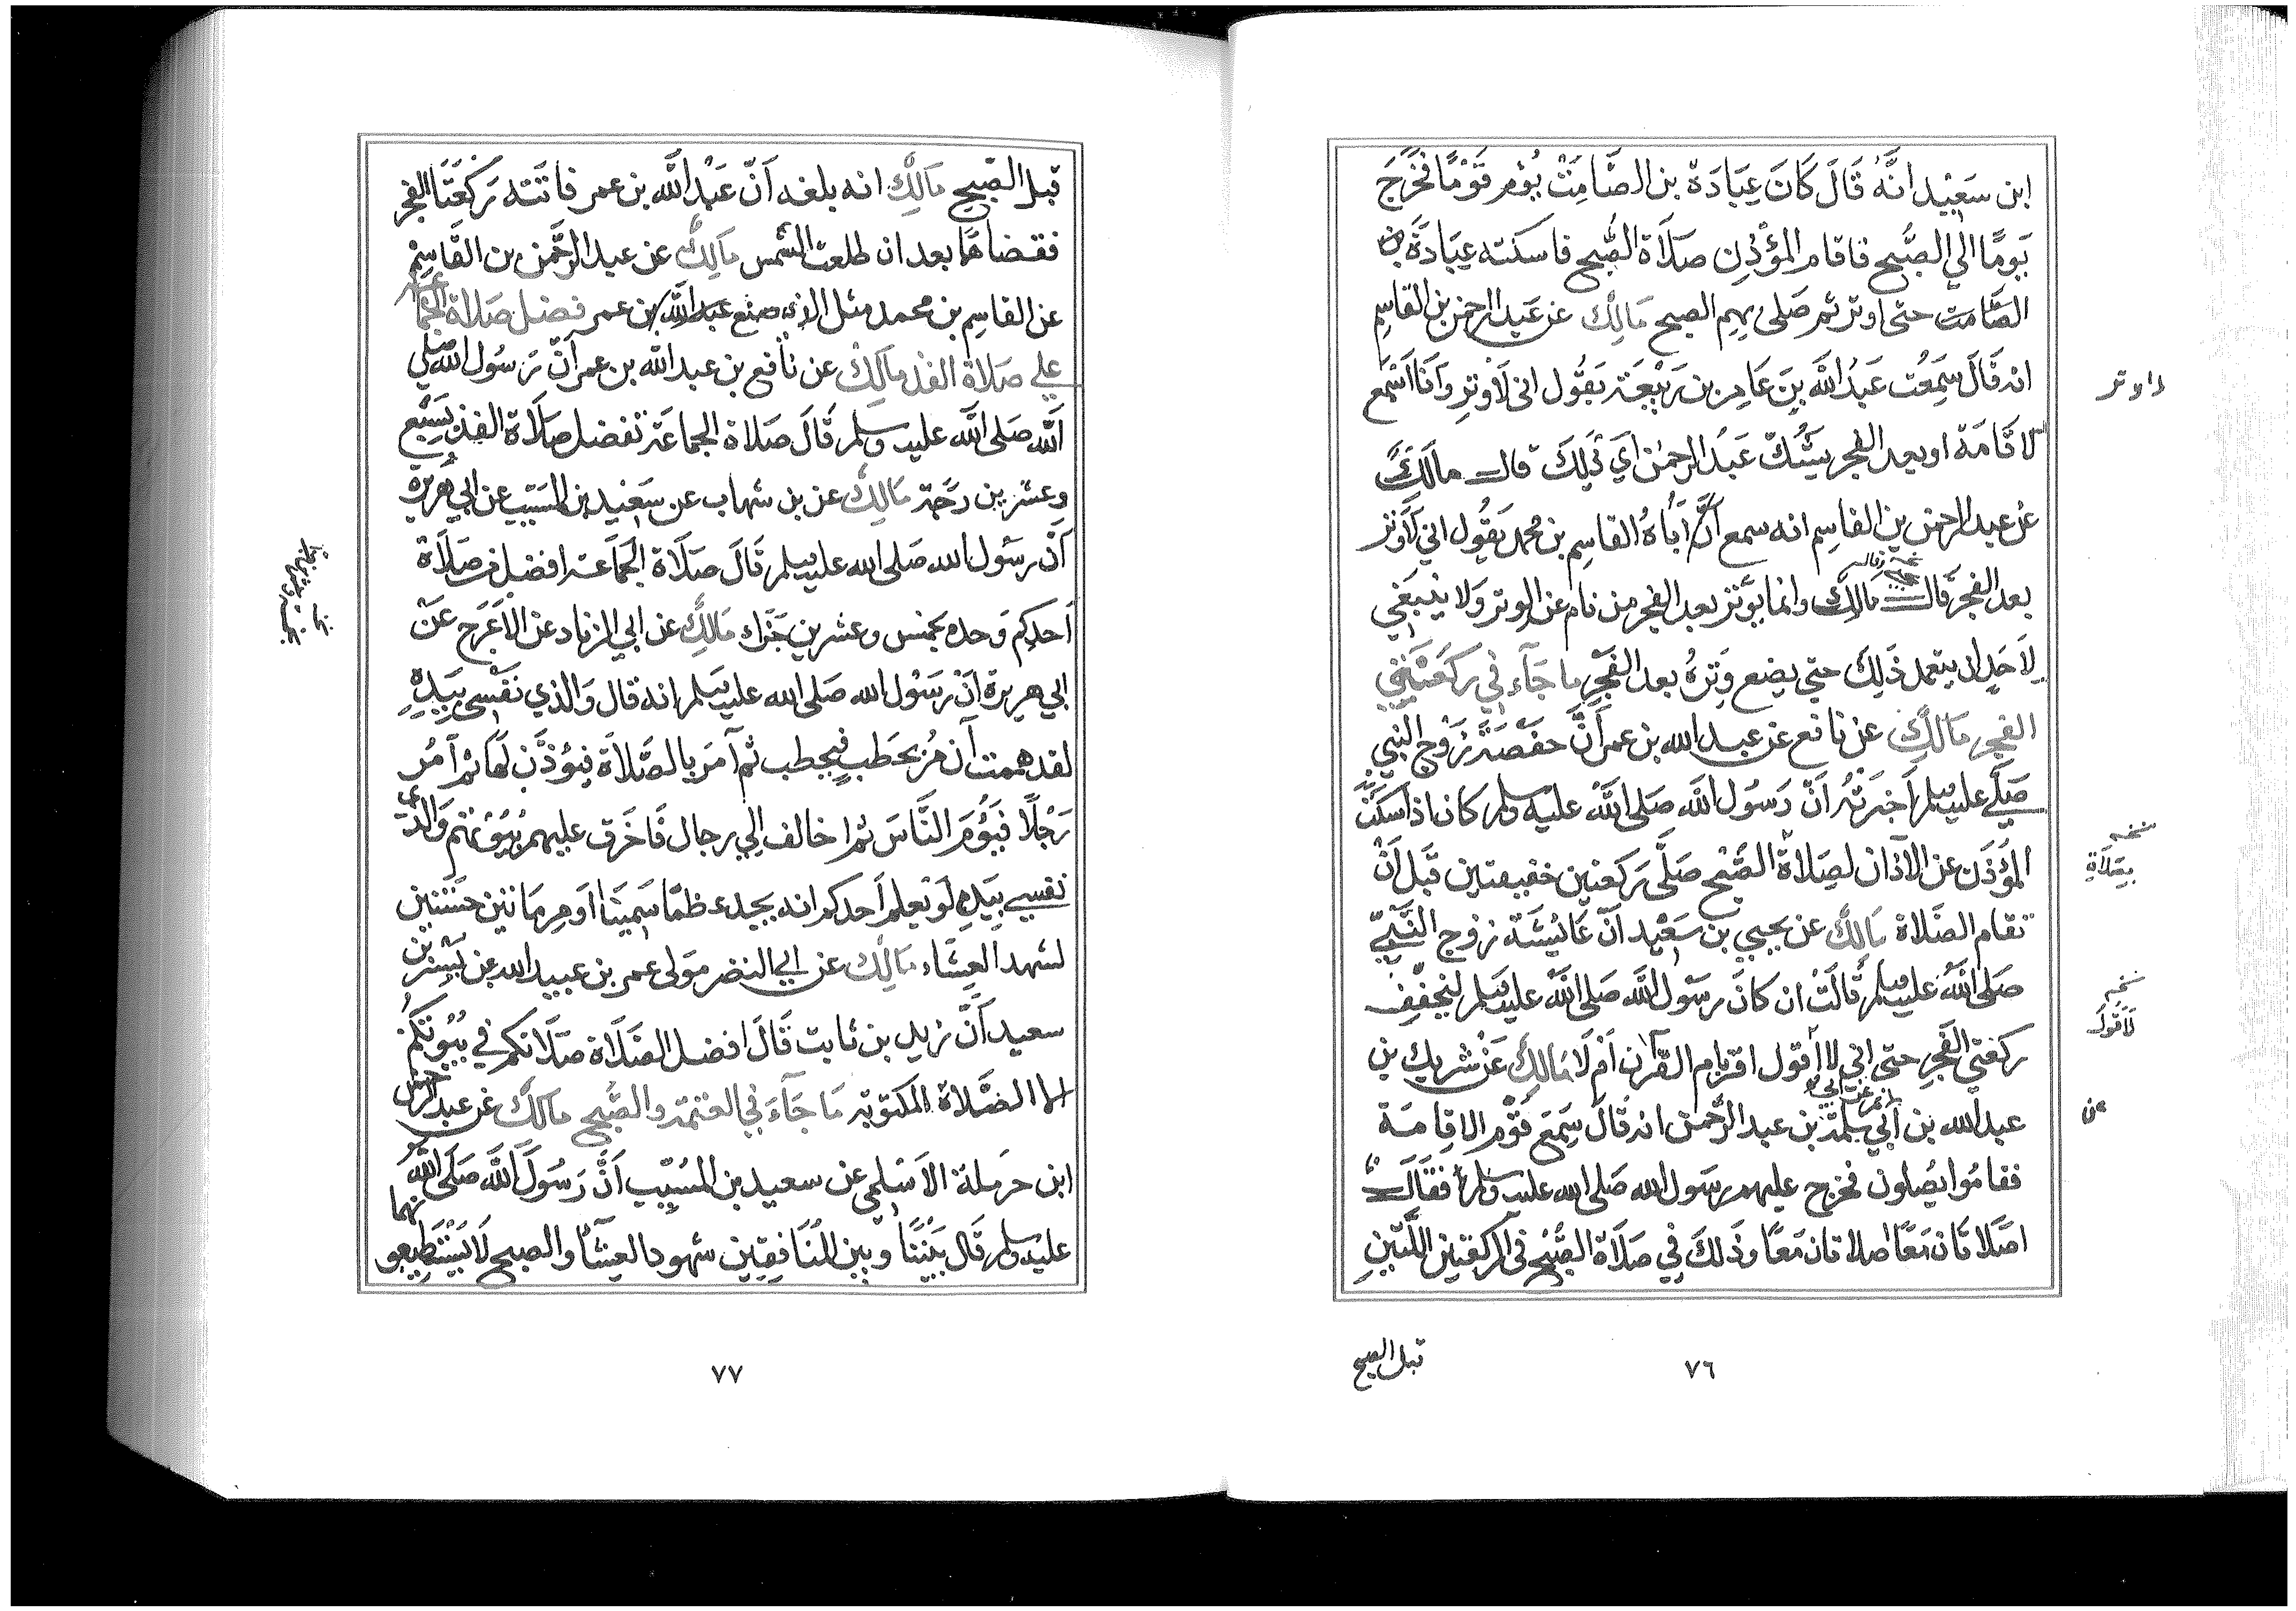 ابن سَعِيْد انَّهُ قَالَ كَانَ عبَادَة بن الصَّامِتْ يُؤم قَوْمًا فَخَرَجَ
يَومًا الي الصُّبح فاقام المؤذن صَلَاة الصُّبح فاسكته عبَادَة بن
الصَّامت حتى اوتر ثم صَلى بهم الصبح مَالِك عن عَبد الرحمن بن القاسِم
انه قَالَ سَمِعْت عَبدُ الله بن عَامِر بن رَبيْعَة يَقُول اني لَاوتر وَاَنَا اَسْمَع
لاقَامَة او بعد الفجر يَشُكّ عَبدُ الرحمن اَي ذَلِكَ قال مالك
عن عبد الرحمن بن القاسِم انه سمع اَبَاهُ القاسِم بن محمد يَقُول اني لَاَوتر
بعد الفجر قال مَالِك وانما يوتر بعد الفجر من نام عن الوتر وَلا ينبَغي
لِاَحَدٍ ان يتعمد ذَلِكَ حتى يضع وَترهُ بعد الفَجْرِ مَا جَآء في رَكعَتَي
الفجر مَالِك عن نافع عن عبد الله بن عمر اَنَّ حَفْصَةَ زَوْج النبي
صَلَّى عليه وسلم اَخبَرتْهُ اَنَّ رَسُول الله صَلى الله عليه وسلم كان اذا سكت
المؤذن عن الاذان لصَلاة الصُّبْح صَلَّى رَكعتين خفيفتين قَبل اَنْ
تقام الصَّلاة مَالِك عن يحيي بن سَعْيد اَنَّ عَائِشَة زوج النَّبيّ
صَلى اللهُ عليه وسلم قَالَتْ ان كَانَ رسُول الله صَلى الله عليه وسلم ليخفف
ركعتي الفَجرِ حتى اني لا اَقول اقرا بام القُرآن اَمْ لَا مَالِك عَنْ شريك بن
عبد الله بن اَبي سلمَة بن عبد الرَّحمن انه قَالَ سَمِعَ قَوْم الاقامَة
فقامُوا يُصَلون فخرج عليهم رسُول الله صَلى الله عليه وسلم فقَالَ
اصَلاتَان مَعًا اصلاتان مَعًا وَذَلكَ في صَلَاة الصُّبح في الركعتين اللَّتين
لاوتر
نسخه
بصَلَاةِ
نسخه
لَاَقُولُ
عن
قبل الصبح
٧٦
قبل الصّبح مَالِك انه بلغه اَنّ عَبْد الله بن عمر فاتته رَكعَتَا الفجر
فقضاهمَا بعد ان طلعت الشمس مَالِك عن عبد الرَّحمن بن القاسِم
عن القاسِم بن محمد مثل الذي صنع عبد الله بن عمر فضل صَلاة الجماعة
علي صَلاة الفذ مَالِك عن نافع بن عبد الله بن عمر اَنّ رَسُول الله صلي
الله صَلى الله عليه وسلم قَالَ صَلاة الجماعَة تفضل صَلَاة الفذ بسَبْع
وعشرين درَجَة مَالِك عن بن شهاب عن سَعْيد بن المسَيّب عن ابي هُرَيرة
اَنَّ رسُول الله صَلى الله عليه وسلم قَالَ صَلَاة الجَمَاعَة افضل من صَلَاة
اَحدِكم وَحده بخمس وعشرين جُزْء مَالِك عن ابي الزناد عن الاَعَرج عَنْ
ابي هريرة اَنّ رَسُول الله صَلى الله عليه وسلم انه قال وَالذي نَفْسي بِيَدِهِ
لقد هممت اَن آمُرْ بحَطَب فيحطب ثم آمرَ بالصَّلَاة فيؤذَّن لَهَا ثم اَمُر
رَجُلًا فيَؤُمَ النَّاسَ ثم اخالف الي رجال فَاحَرق عليهم بُيُوتهم وَالَّذي
نفسي بِيَدِهِ لَوْ يَعلم اَحدكم انه يجد عظمًا سَمينًا اَو مِرمَاتين حَسَنتين
لشهد العِشَاء مَالِك عن ابي النضر مَولى عمر بن عبيد الله عن بُسْر بن
سعيد اَنَّ زيد بن ثابت قَالَ افضل الصَّلَاة صَلَاتكم في بُيُوتكُم
الا الصَّلاة المكتوبة مَا جَآءَ في العتمة والصُّبح مَالِك عن عبد الرحمن
ابن حَرملة الاَسْلمي عن سعيد بن المُسَيّب اَنَّ رَسُولَ الله صَلى الله
عليه وسلم قَال بَيْنَنَا وبين المُنَافِقِين شهود العِشآء والصبح لَا يَسْتَطِيعُونهما
٧٧